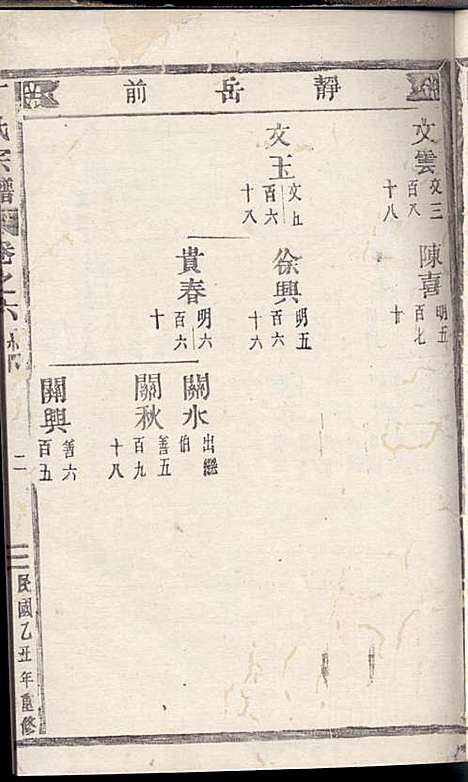 靜岳前
文雲
文三
百八
十八
陳喜
明五
百七
十
文玉
文五
百六
十八
徐興
明五
百六
十六
貴春
明六
百六
十
關水
出繼
伯
關秋
善五
百九
十八
關興
善六
百五
氏宗譜
卷之六
二
民國乙丑年重修